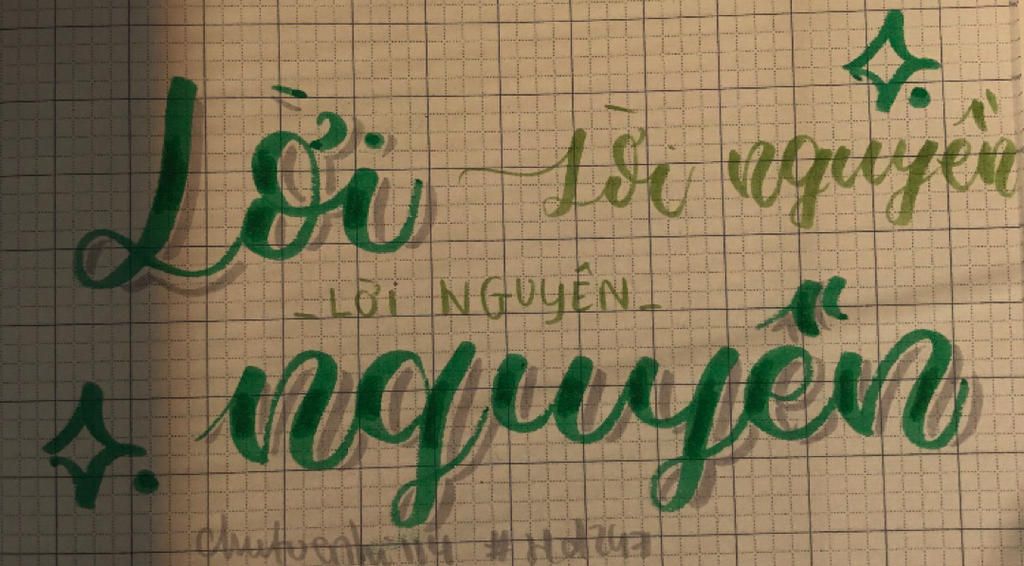 Lời
Lời nguyền
_LỜi NGUYÊN_
nguyền
#Hd247